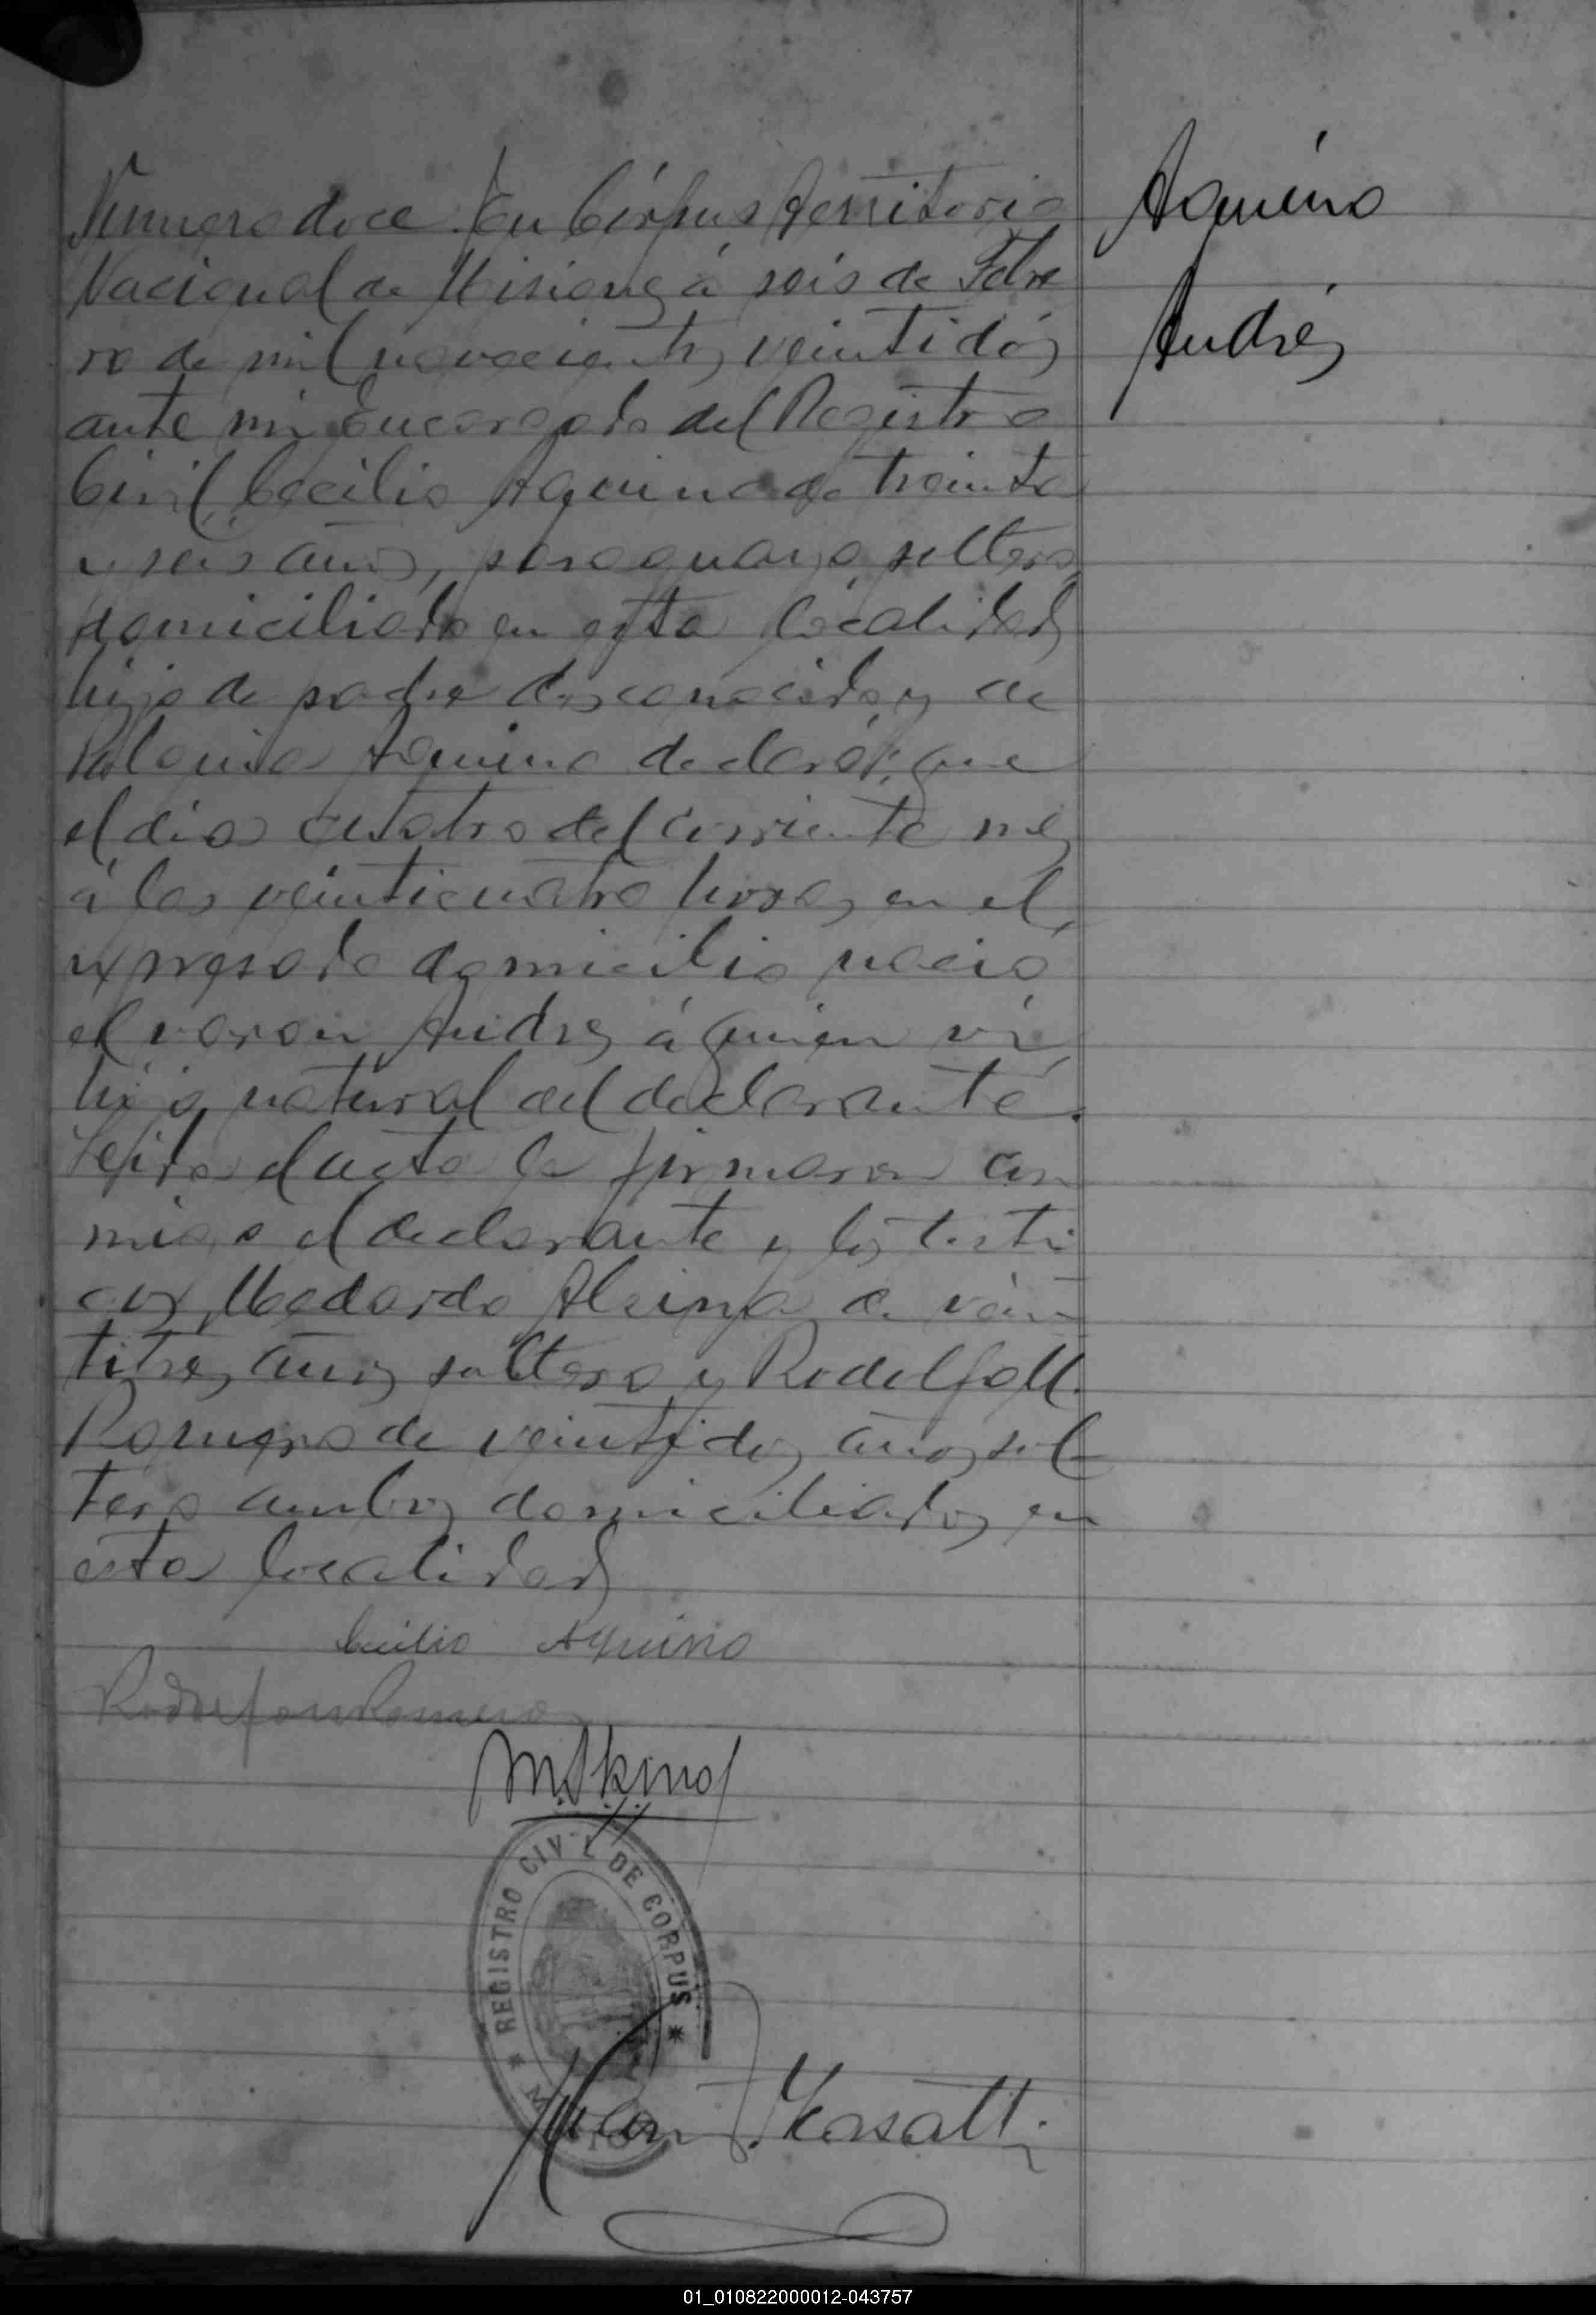 Numero doce. En Córpus Territorio
Nacional de Misiones á seis de Febre
ro de mil novecientos veintidós
ante mi Encargado del Registro
Civil, Cecilio Aquino de treinta
y seis años, paraguayo, soltero,
domiciliado en esta localidad,
hijo de padre desconocido y de
Aquino declaró: que
el dia cuatro del corriente mes
á las veinticuatro horas en el
expresado domicilio nació
el varon Andres á quien ví,
hijo natural del declarante.
Leida el acta la firmaron con
migo el declarante y los testi
gos, Medardo de vein
titres años soltero y Rodolfo M.
Romero de veintidos años sol
tero ambos domiciliados en
esta localidad
Aquino
Andrés
Cecilio Aquino
Rodolfo M Romero
REGISTRO CIVIL DE CORPUS
Juan
01_010822000012-043757